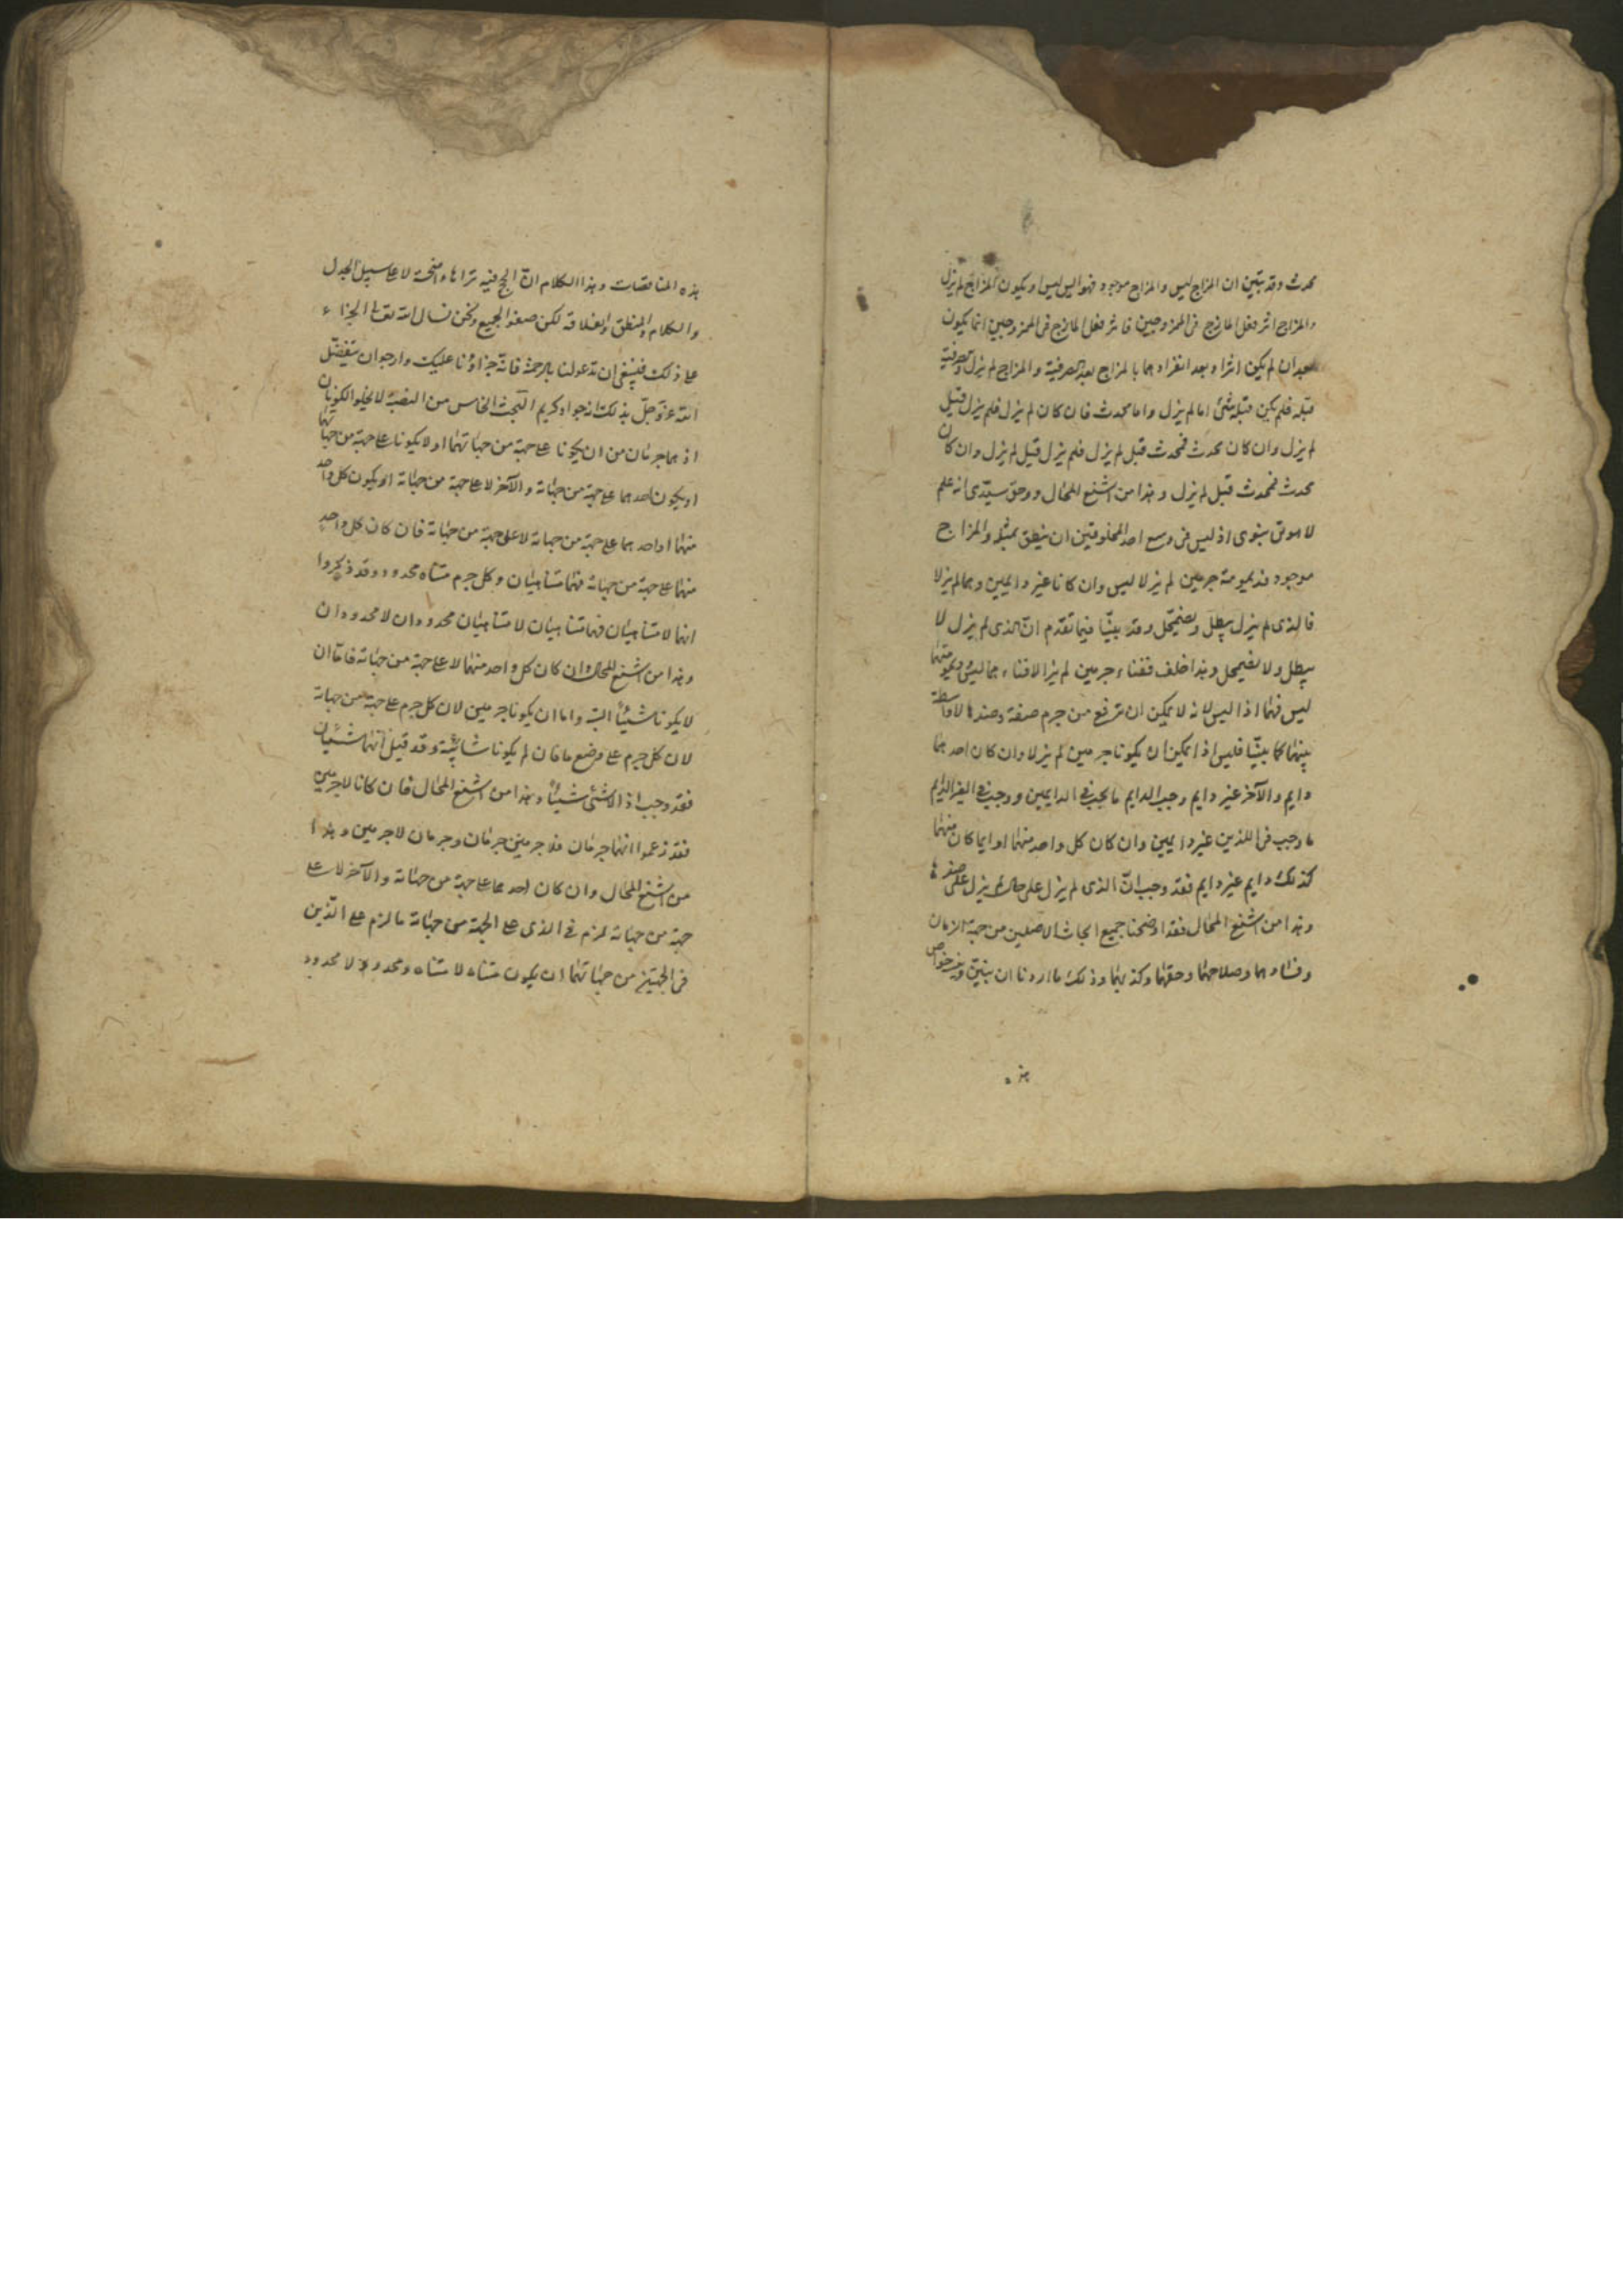 محدث وقد تبين ان المزاج ليس والمزاج موجود فهو اليس ليس او يكون المزاج لم يزل
والمزاج اثر فعل المازج فى الممزوجين فاثر فعل المازج فى الممزوجين انما يكون
بعد ان لم يكن اثرا وبعد انفرادهما بالمزاج بعد الصرفية والمزاج لم يزل والصرفية
قبله فلم يكن قبله شئ اما لم يزل واما محدث فان كان لم يزل فلم يزل قبل
لم يزل وان كان محدث فمحدث قبل لم يزل فلم يزل قبل لم يزل وان كان
محدث فمحدث قبل لم يزل وهذا من اشنع المحال ووحق سيدى انه علم
لا سوى اذ ليس فى وسع احد المخلوقين ان ينطق بمثله والمزاج
موجود فديمومة جرمين لم يزلا ليس وان كانا غير دايمين وهما لم يزلا
فالذى لم يزل يبطل ويضمحل وقد بينا فيما تقدم ان الذى لم يزل لا
يبطل ولا يضمحل وهذا خلف ففناء جرمين لم يزالا فناءهما ليس وديمومتهما
ليس فهما اذا ليس لانه لا يمكن ان ترفع من جرم صفة وضدها لا واسطة
بينهما كما بينا فليس اذا يمكن ان يكونا جرمين لم يزلا وان كان احدهما
دايم والآخر غير دايم وجب الدايم ما يجب فى الدايمين ووجب فى الغير الدايم
ما وجب فى اللذين غير دايمين وان كان كل واحد منهما او ايما كان منهما
كذلك دايم غير دايم فقد وجب ان الذى لم يزل على حال لم يزل على ضدها
وهذا من اشنع المحال فقد اوضحنا جميع ابحاث الاصلين من جهة الزمان
وفسادهما وصلاحهما وحقهما وكذبهما وذلك ما اردنا ان نبين خواص
هذه
هذه المناقضات وهذا الكلام ان الحج فيه تراها واضحة لا على سبيل الجدل
والكلام والمنطق والفلاسفة لكن صفو الجميع ونحن نسال الله تعالى الجزاء
على ذلك فينبغى ان تدعو لنا بالرحمة فانه جزاؤنا عليك وارجو ان يتفضل
الله عز وجل بذلك انه جواد كريم البحث الخامس من النصبة لا يخلو الكونان
اذ هما جرمان من ان يكونا على جهة من جهاتهما او لا يكونا على جهة من جهاتهما
او يكون احدهما على جهة من جهاته والآخر لا على جهة من جهاته او يكون كل واحد
منهما او احدهما على جهة من جهاته لا على جهة من جهاته فان كان كل واحد
منهما على جهة من جهاته فهما متناهيان وكل جرم متناه محدود وقد ذكروا
انهما لا متناهيان فهما متناهيان لا متناهيان محدودان لا محدودان
وهذا من اشنع المحال وان كان كل واحد منهما لا على جهة من جهاته فاما ان
لا يكونا شيئا البتة واما ان يكونا جرمين لان كل جرم على جهة من جهاته
لان كل جرم على موضع ما فان لم يكونا شيئا البتة وقد قيل انهما شيئان
فقد وجب اذ اللاشئ شيئا وهذا من اشنع المحال فان كانا لا جرمين
فقد زعموا انهما جرمان فلا جرمين جرمان وجرمان لا جرمين وهذا
من اشنع المحال وان كان احدهما على جهة من جهاته والآخر لا على
جهة من جهاته لزم فى الذى على الجهة من جهاته ما لزم على الذين
فى الجهتين من جهاتهما ان يكون متناه لا متناه ومحدود لا محدود